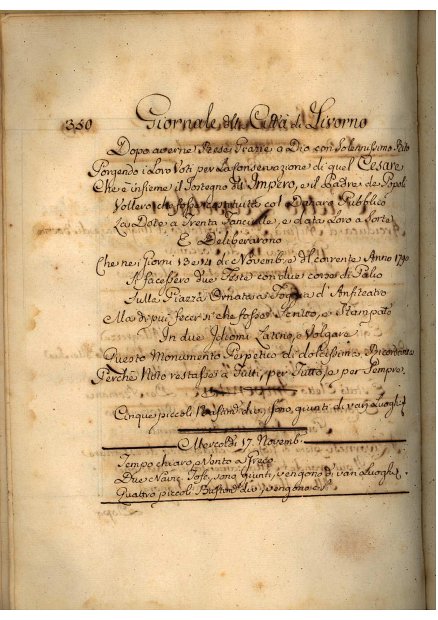 350 Giornale della Città di Livorno
Dopo averne Rese Grazie a Dio con Solennissimo Rito
Porgendo i Loro Voti per La Conservazione di quel Cesare
Che è insieme il Sostegno dell' Impero, e il Padre de Popoli
Vollero che fosse costituite col Denaro Pubblico
La Dote a Trenta Fanciulle, e data Loro a Sorte
E Deliberarono
Che ne i Giorni 13 e 14 di Novembre del corrente Anno
Si facessero due Feste con due corse di Palio
Sulla Piazza Ornata a Foggia d' Anfiteatro
Ma di più fecer sì che fosse Scritto, e Stampato
In due Idiomi Latino, e Volgare
Questo Monumento Perpetuo di dolcissima Ricordanza
Perchè Noto restasse a Tutti, per Tutto, e per Sempre.
Cinque piccoli Bastim.ti div. sono giunti di varj Luoghi
Mercoldì 17. Novemb.
Tempo chiaro, e Vento a Greco
Due Navic. sono giunti, e vengono di varj Luoghi
Quattro piccol. Bastim.ti div.